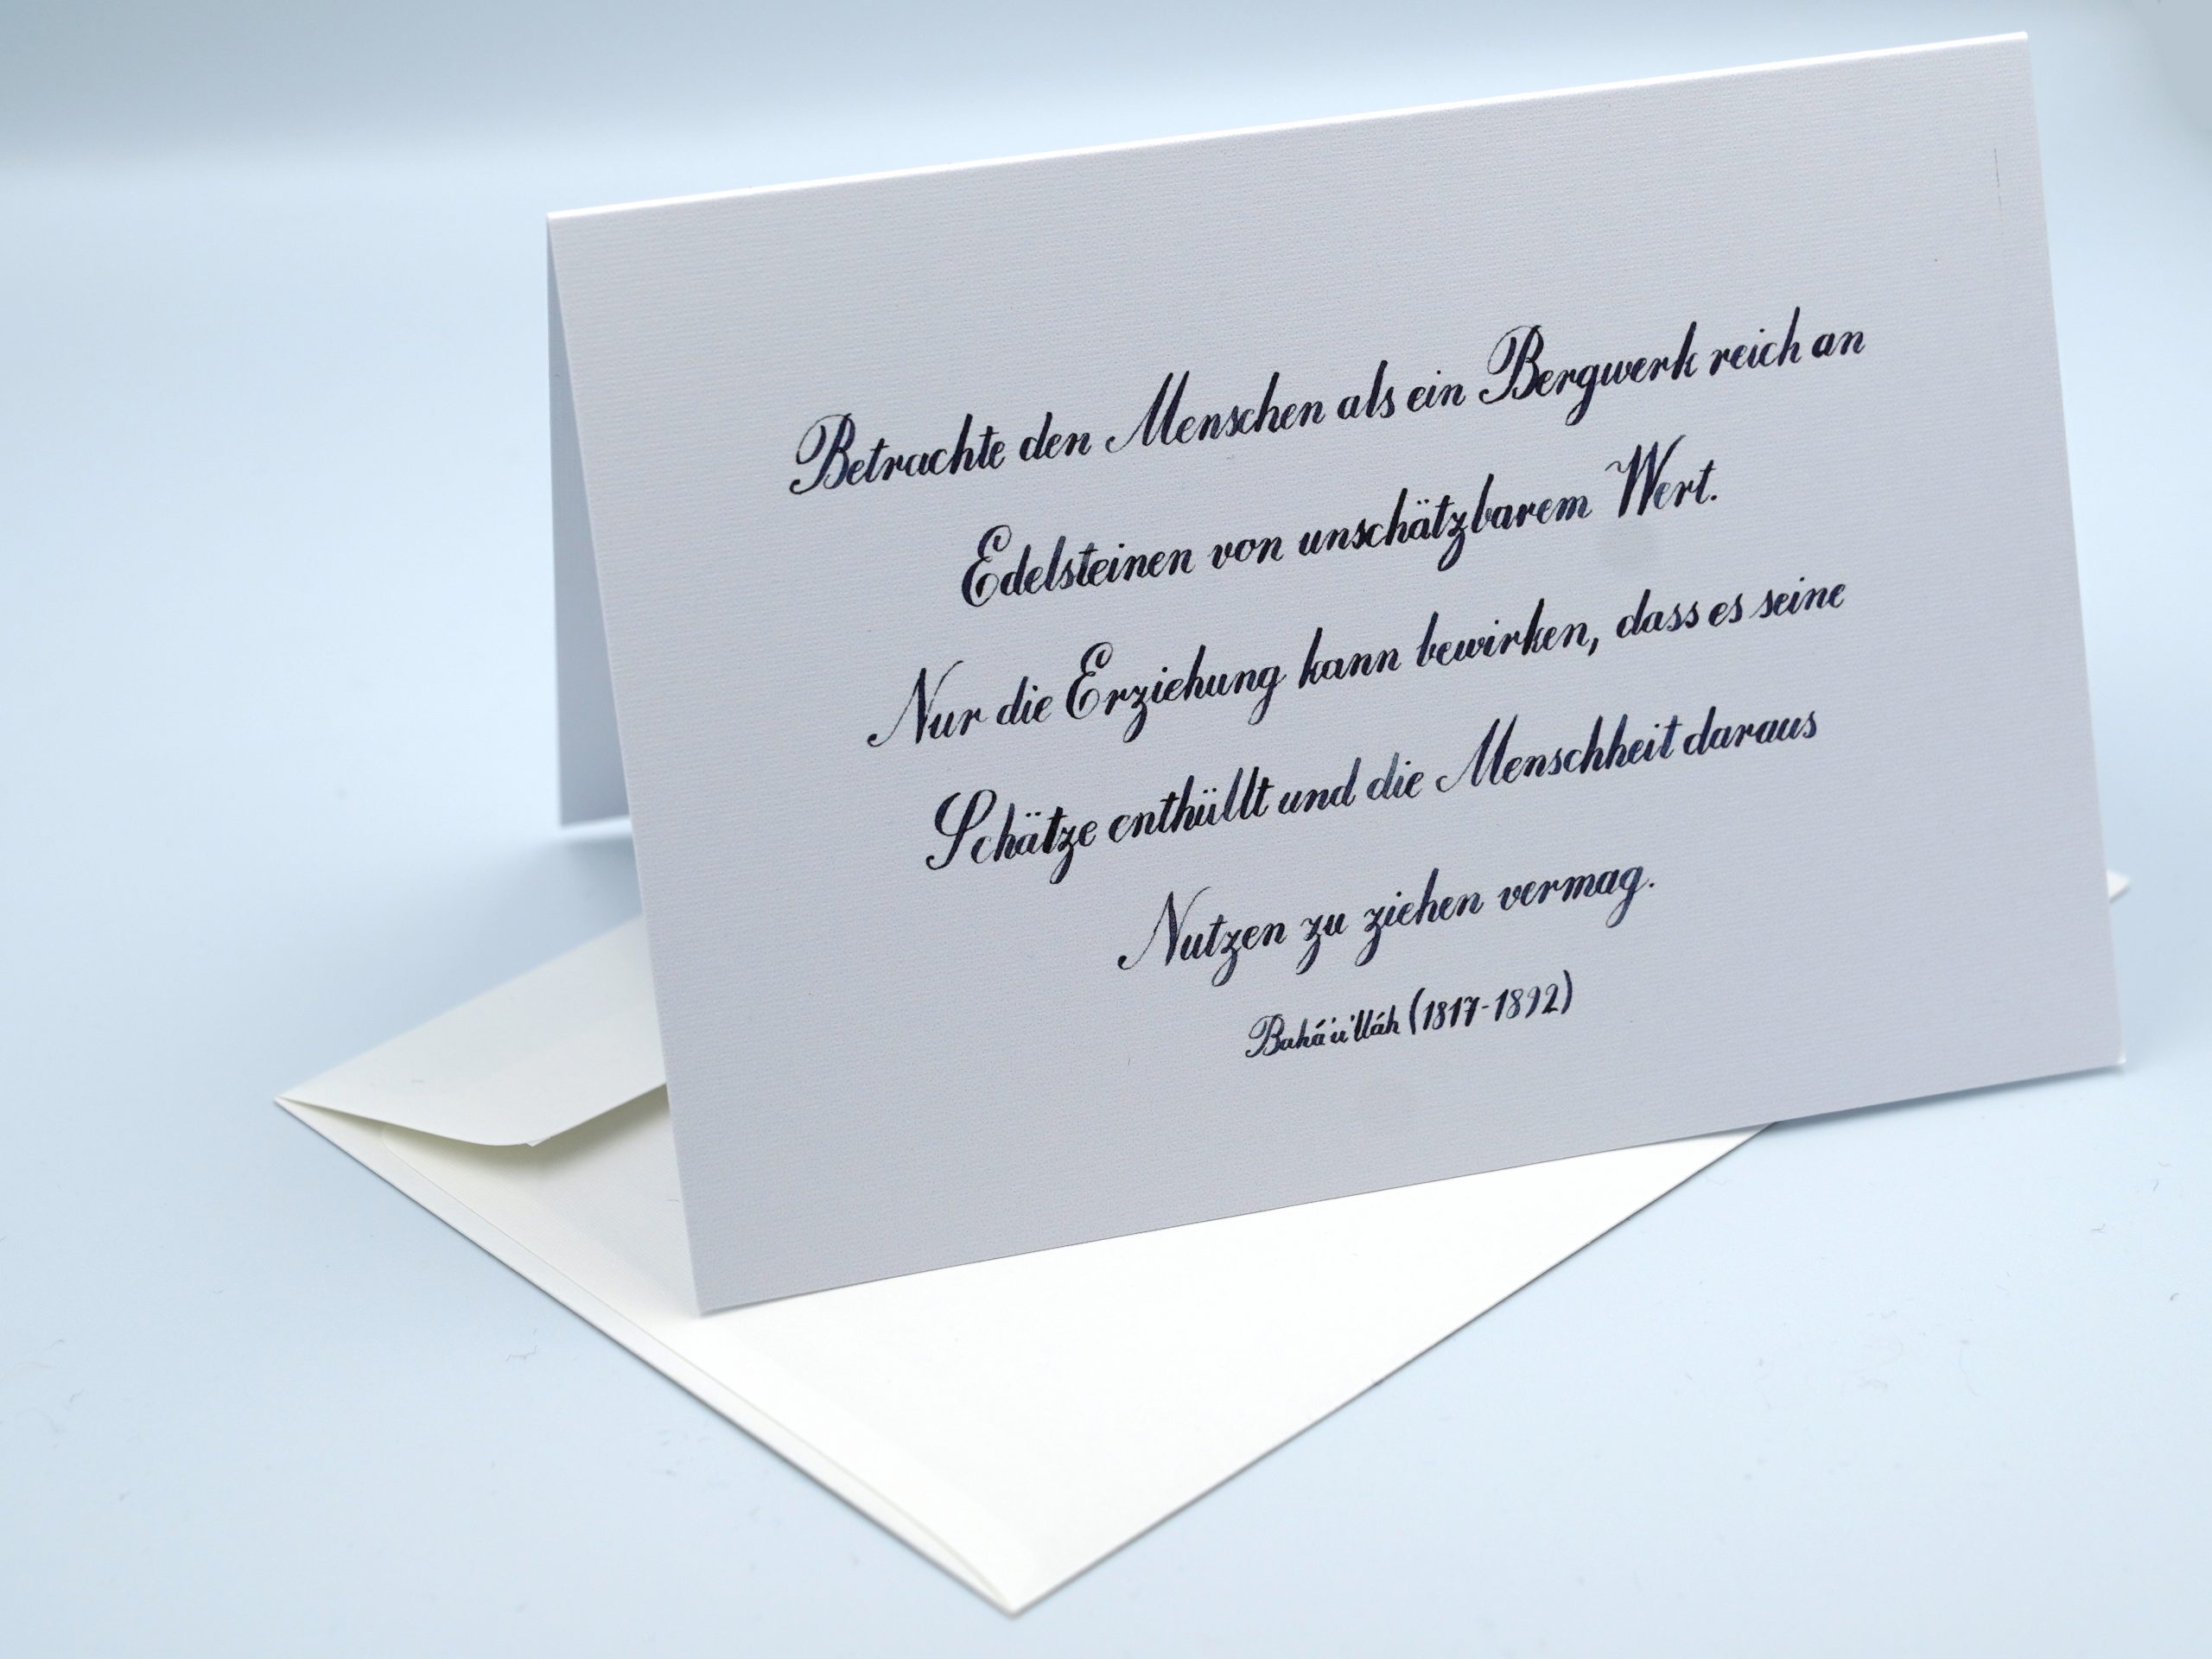 Betrachte den Menschen als ein Bergwerk reich an
Edelsteinen von unschätzbarem Wert.
Nur die Erziehung kann bewirken, dass es seine
Schätze enthüllt und die Menschheit daraus
Nutzen zu ziehen vermag.
Bahá'u'lláh (1817-1892)